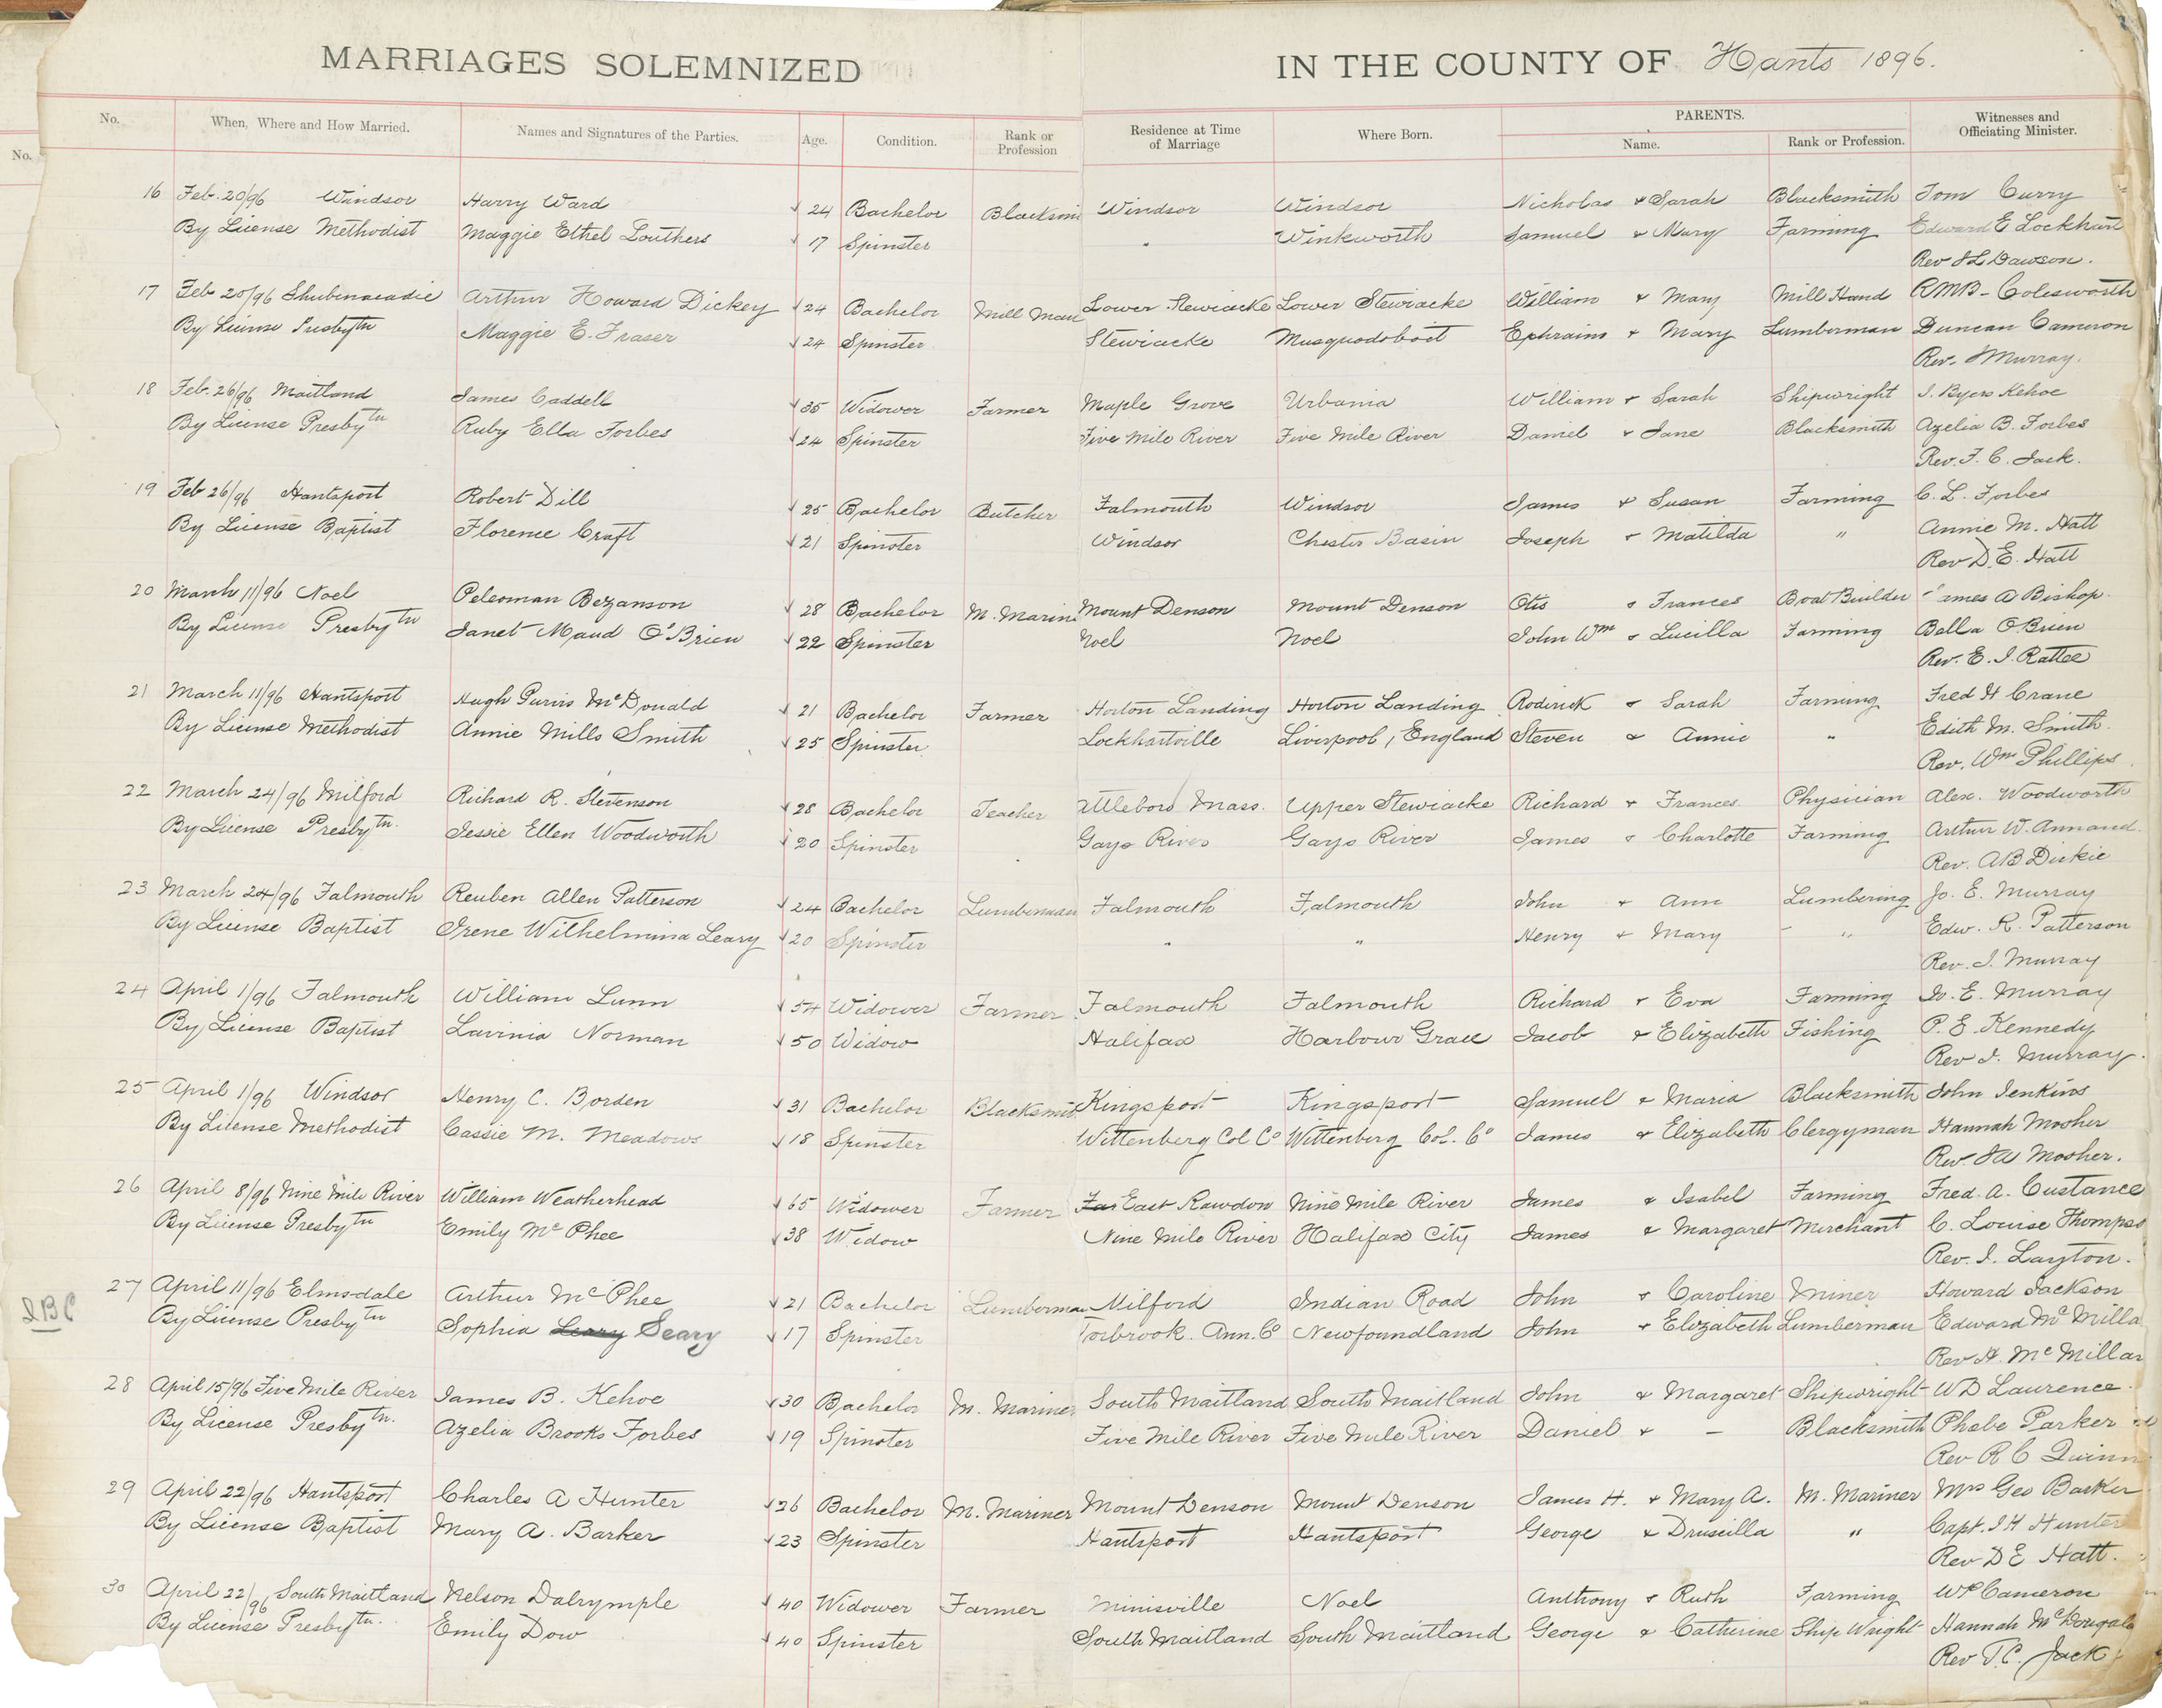 MARRIAGES SOLEMNIZED IN THE COUNTY OF Hants 1896.
No. When, Where and How Married. Names and Signatures of the Parties. Age. Condition. Rank or Profession Residence at Time of Marriage Where Born. PARENTS. Name. Rank or Profession. Witnesses and Officiating Minister.
No.
16 Feb. 20/96 Windsor Harry Ward 24 Bachelor Blacksmi Windsor Windsor Nicholas & Sarah Blacksmith Tom Curry
By License Methodist Maggie Ethel Louthers 17 Spinster " Winkworth Samuel & Mary Farming Edward E Lockhart
Rev J L Dawson.
17 Feb 20/96 Shubenacadie Arthur Howard Dickey 24 Bachelor Mill Man Lower Stewiacke Lower Stewiacke William & Mary Mill Hand RMB- Colesworth
By License Presbytn Maggie E. Fraser 24 Spinster Stewiacke Musquodoboit Ephraim & Mary Lumberman Duncan Cameron
Rev. J Murray.
18 Feb. 26/96 Maitland James Caddell 35 Widower Farmer Maple Grove Urbania William & Sarah Shipwright J. Byers Kehoe
By License Presbytn Ruby Ella Forbes 24 Spinster Five Mile River Five Mile River Daniel & Jane Blacksmith Azelia B. Forbes
Rev. T. C. Jack.
19 Feb 26/96 Hantsport Robert Dill 25 Bachelor Butcher Falmouth Windsor James & Susan Farming C. L. Forbes
By License Baptist Florence Craft 21 Spinster Windsor Chester Basin Joseph & Matilda " Annie M. Hatt
Rev D. E. Hatt
20 March 11/96 Noel Peleoman Bezanson 28 Bachelor M. Marine Mount Denson Mount Denson Otis & Frances Boat Builder James A Bishop.
By License Presbytn Janet Maud O'Brien 22 Spinster Noel Noel John Wm & Lucilla Farming Bella O'Brien
Rev. E. J. Rattee
21 March 11/96 Hantsport Hugh Purvis McDonald 21 Bachelor Farmer Horton Landing Horton Landing Roderick & Sarah Farming Fred H Crane
By License Methodist Annie Mills Smith 25 Spinster Lockhartville Liverpool, England Steven & Annie " Edith M. Smith.
Rev. Wm Phillips.
22 March 24/96 Milford Richard R. Stevenson 28 Bachelor Teacher Attleboro Mass. Upper Stewiacke Richard & Frances Physician Alex. Woodworth
By License Presbytn. Jessie Ellen Woodworth 20 Spinster Gays River Gays River James & Charlotte Farming Arthur W. Annand.
Rev. A B Dickie
23 March 24/96 Falmouth Reuben Allen Patterson 24 Bachelor Lumberman Falmouth Falmouth John & Ann Lumbering Jo. E. Murray
By License Baptist Irene Wilhelmina Leary 20 Spinster " " Henry & Mary " Edw. R. Patterson
Rev. J. Murray
24 April 1/96 Falmouth William Lunn 54 Widower Farmer Falmouth Falmouth Richard & Eva Farming Jo. E. Murray
By License Baptist Lavinia Norman 50 Widow Halifax Harbour Grace Jacob & Elizabeth Fishing P. E. Kennedy
Rev J. Murray.
25 April 1/96 Windsor Henry C. Borden 31 Bachelor Blacksmit Kingsport Kingsport Samuel & Maria Blacksmith John Jenkins
By License Methodist Cassie M. Meadows 18 Spinster Wittenberg Col Co Wittenberg Col. Co James & Elizabeth Clergyman Hannah Mosher
Rev. J A Mosher.
26 April 8/96 Nine Mile River William Weatherhead 65 Widower Farmer Far East Rawdon Nine Mile River James & Isabel Farming Fred. A. Custance
By License Presbytn Emily McPhee 38 Widow Nine Mile River Halifax City James & Margaret Merchant C. Louise Thomps
Rev. J. Layton.
27 April 11/96 Elmsdale Arthur McPhee 21 Bachelor Lumberman Milford Indian Road John & Caroline Miner Howard Jackson
IBC By License Presbytn Sophia Leary Seary 17 Spinster Torbrook. Ann. Co Newfoundland John & Elizabeth Lumberman Edward McMilla
Rev H. McMillan
28 April 15/96 Five Mile River James B. Kehoe 30 Bachelor M. Mariner South Maitland South Maitland John & Margaret Shipwright W D Laurence.
By License Presbytn. Azelia Brooks Forbes 19 Spinster Five Mile River Five Mile River Daniel & — Blacksmith Phebe Parker
Rev R C Quinn
29 April 22/96 Hantsport Charles A Hunter 26 Bachelor M. Mariner Mount Denson Mount Denson James H. & Mary A. M. Mariner Mrs Geo Barker
By License Baptist Mary A. Barker 23 Spinster Hantsport Hantsport George & Druscilla " Capt. J H Hunter
Rev D E Hatt.
30 April 22/96 South Maitland Nelson Dalrymple 40 Widower Farmer Minisville Noel Anthony & Ruth Farming Wm Cameron
By License Presbytn. Emily Dow 40 Spinster South Maitland South Maitland George & Catherine Ship Wright Hannah McDougal
Rev T. C. Jack